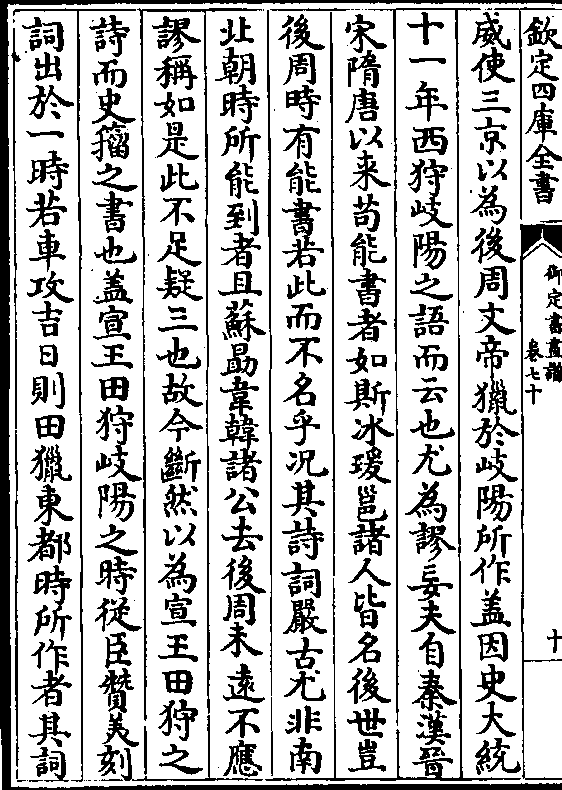 欽定四庫全書
御定書畫譜
卷七十
十
威使三京以為後周文帝獵於岐陽所作盖因史大統
十一年西狩岐陽之語而云也尤為謬妄夫自秦漢晉
宋隋唐以来苟能書者如斯冰瑗邕諸人皆名後世豈
後周時有能書若此而不名乎况其詩詞嚴古尤非南
北朝時所能到者且蘇勗韋韓諸公去後周未遠不應
謬稱如是此不足疑三也故今斷然以為宣王田狩之
詩而史籀之書也盖宣王田狩岐陽之時從臣贊美刻
詞出於一時若車攻吉日則田獵東都時所作者其詞